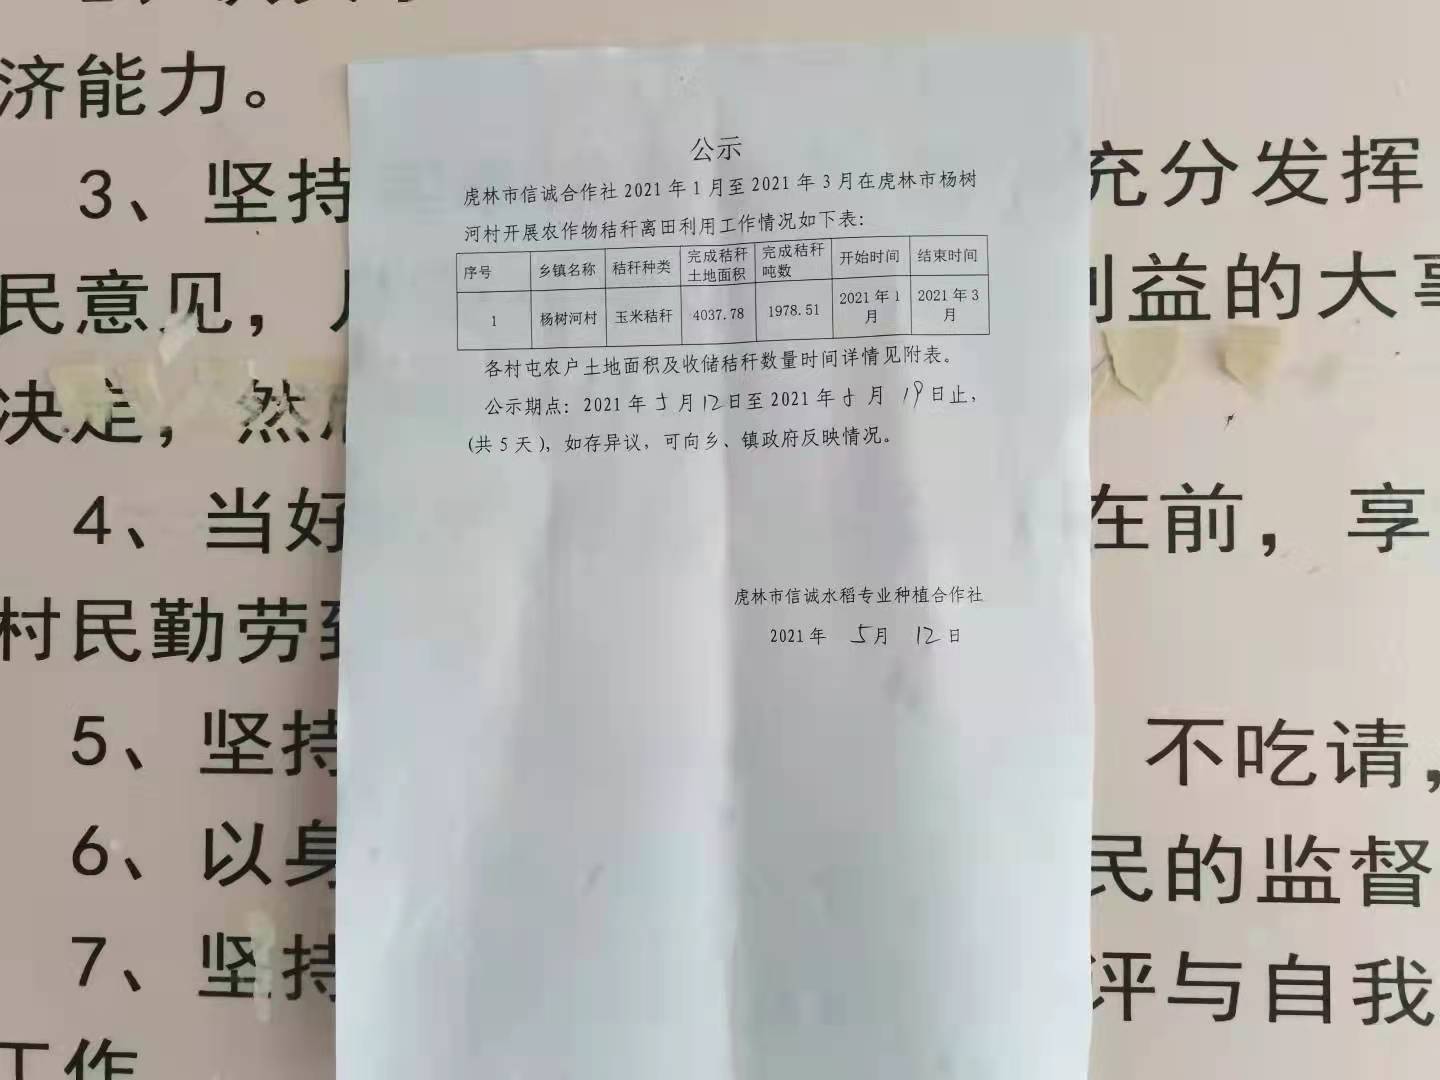 济能力。
3、坚持
充分发挥
民意见，
利益的大事
决定，然后
4、当好
在前，享
村民勤劳致
5、坚持
不吃请，
6、以身
民的监督
7、坚持
评与自我
工作
公示
虎林市信诚合作社2021年1月至2021年3月在虎林市杨树
河村开展农作物秸秆离田利用工作情况如下表：
序号 乡镇名称 秸秆种类 完成秸秆土地面积 完成秸秆吨数 开始时间 结束时间
1 杨树河村 玉米秸秆 4037.78 1978.51 2021年1月 2021年3月
各村屯农户土地面积及收储秸秆数量时间详情见附表。
公示期点：2021年5月12日至2021年5月19日止，
(共5天)，如存异议，可向乡、镇政府反映情况。
虎林市信诚水稻专业种植合作社
2021年 5月 12日